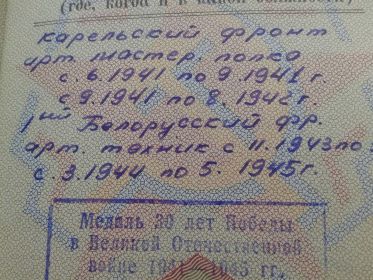 (где, когда и в какой должности)
карельский фронт
арт. мастер. полка
с. 6. 1941 по 9. 1941 г.
с 9. 1941 по 8. 1942 г.
1ий Белорусский фр.
арт. техник с 11. 1943 по
с. 3. 1944 по 5. 1945 г.
Медаль 30 лет Победы
в Великой Отечественной
войне 1941-1945 гг.